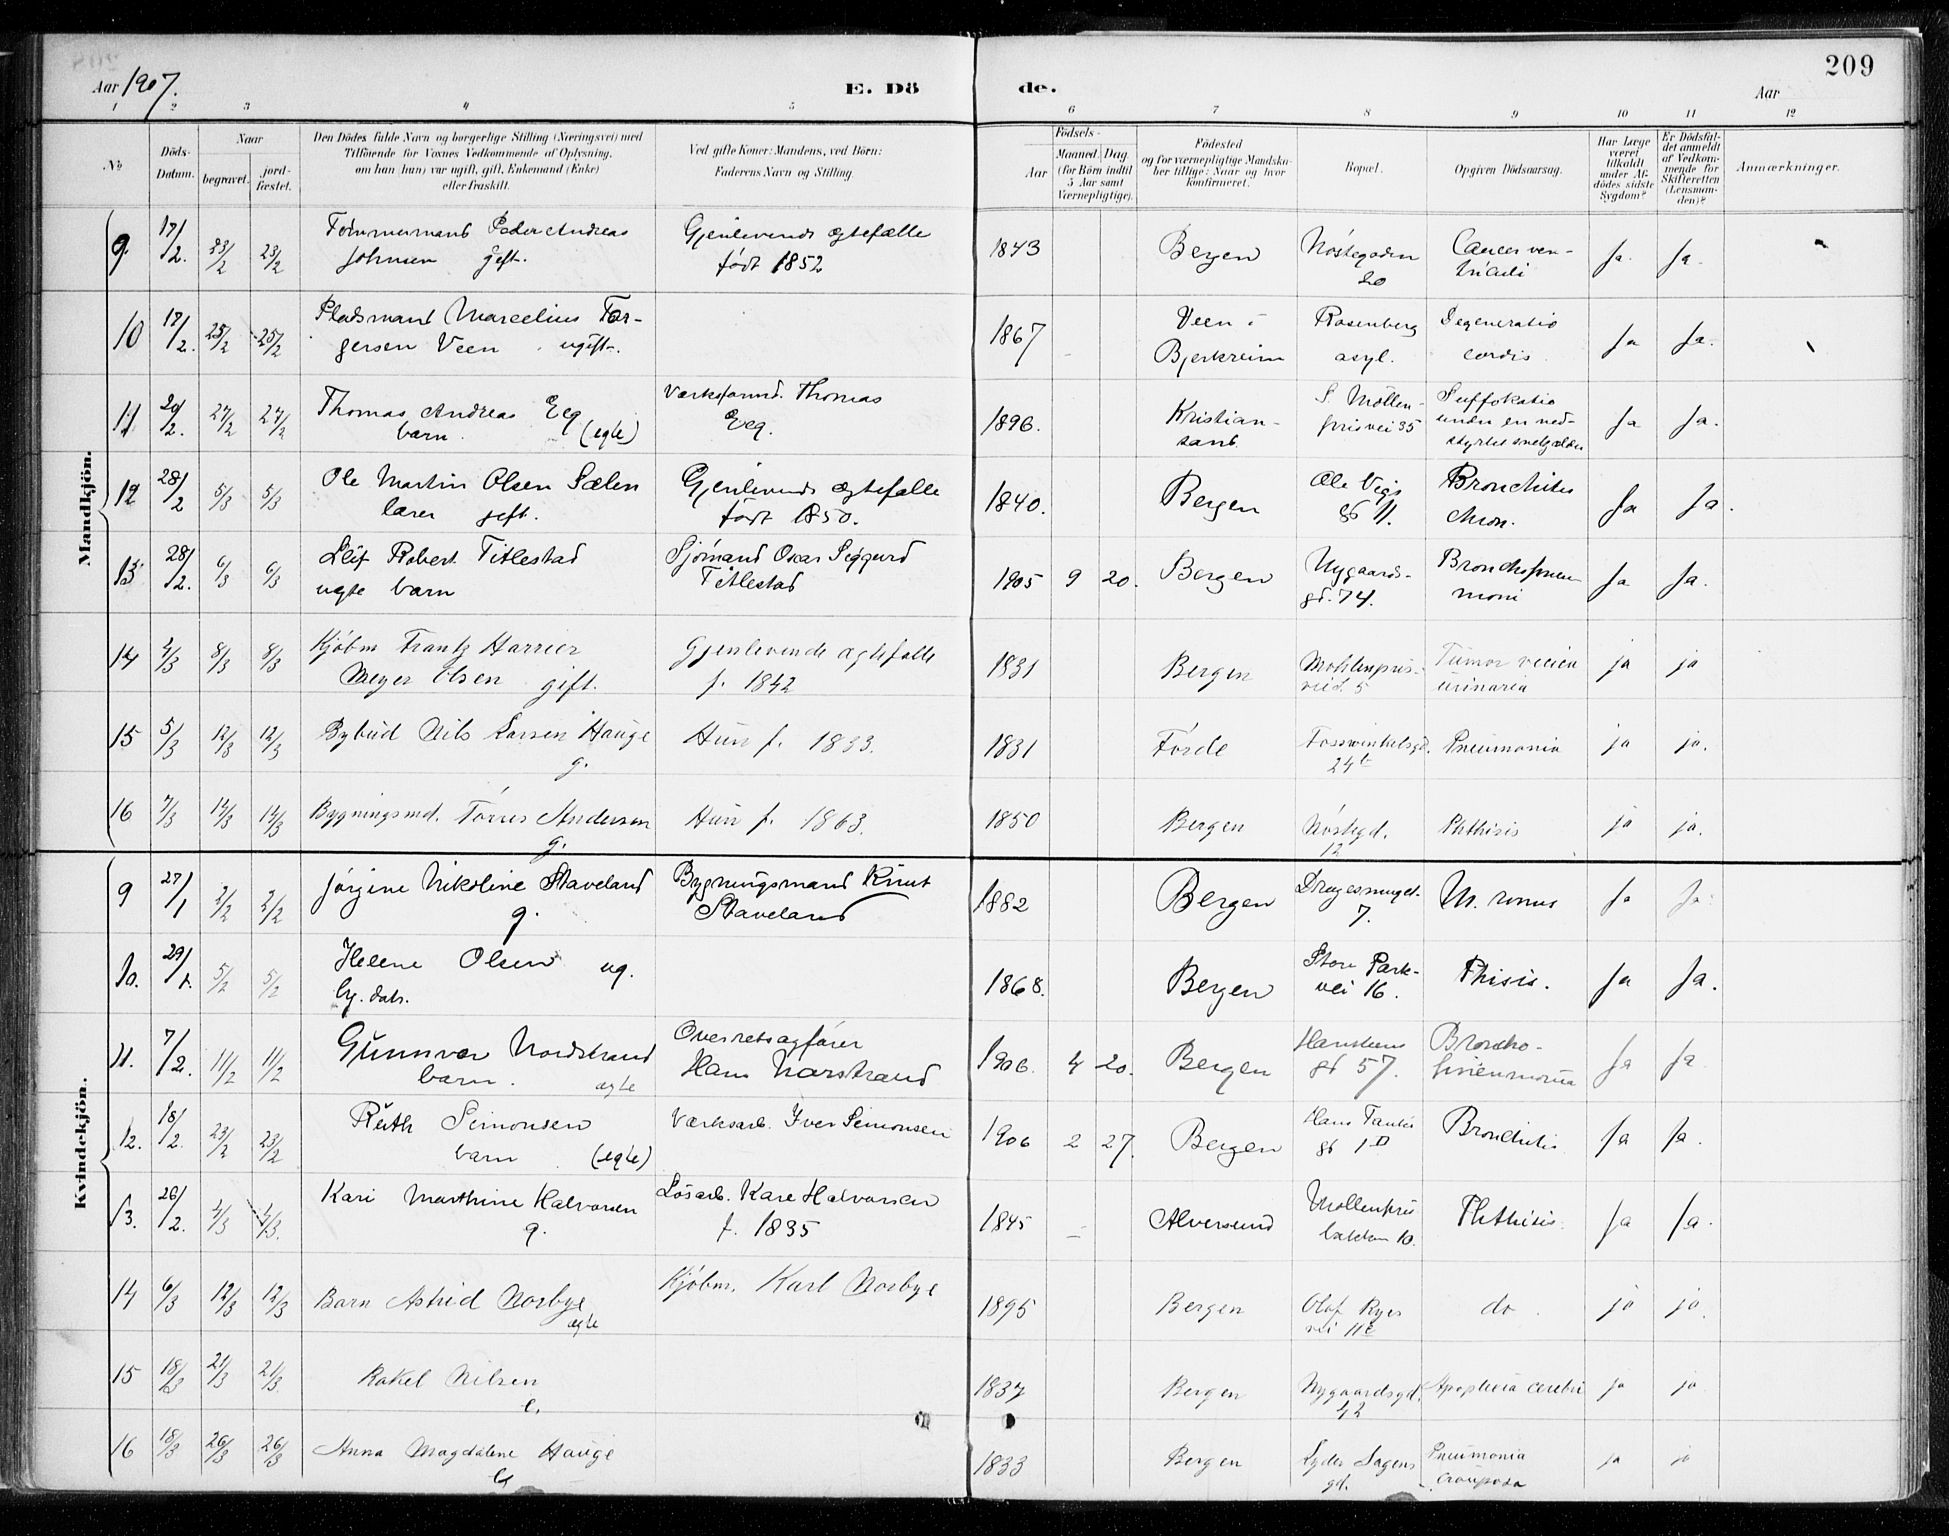 209
Aar 1907.
E. Dö
de.
Aar
1 2 3 4 5 6 7 8 9 10 11 12
No
Döds-Datum.
Naar
begravet.
jord-fæstet.
Den Dödes fulde Navn og borgerlige Stilling (Næringsvei) med
Tilföiende for Voxnes Vedkommende af Oplysning,
om han (hun) var ugift, gift, Enkemand (Enke)
eller fraskilt.
Ved gifte Koner: Mandens, ved Börn:
Faderens Navn og Stilling.
Födsels-
Aar
Maaned. Dag.
(for Börn indtil
5 Aar samt
Værnepligtige).
Födested
og for værnepligtige Mandska-
ber tillige: Naar og hvor
konfirmeret.
Bopæl.
Opgiven Dödsaarsag.
Har Læge
været
tilkaldt
under Af-
dödes sidste
Sygdom?
Er Dödsfal-
det anmeldt
af Vedkom-
mende for
Skifteretten
(Lensman-
den)?
Anmærkninger.
Mandkjön.
9. 17/2. 23/2 23/2 Tømmermand Peder Andreas Gjenlevende ægtefælle 1843 Bergen Nöstegaden Cancer ven- Ja. Ja.
Johnsen gift. født 1852 20 triculi
10 17/2. 25/2 25/2 Pladsmand Marcelius Tor- 1867 Veen i Rosenberg Degeneratio Ja Ja.
gersen Veen ugift. Bjerkreim asyl. cordis
11 20/2. 27/2 27/2 Thomas Andreas Eeg Verksformd. Thomas 1896. Kristian- S Möllen- Suffokatio Ja Ja.
barn. (egte) Eeg. sand prisvei 35 under en ned-
styrtet
12 28/2 5/3 5/3 Ole Martin Olsen Sælen Gjenlevende ægtefælle 1840. Bergen Ole Vigs Bronchitis Ja Ja.
lærer gift. født 1850. gd 11. chron.
13 28/2. 6/3 6/3 Leif Robert Titlestad Sjömand Oscar Siggurd 1905 9 20. Bergen Nygaards- Bronchopneu- Ja Ja.
uegte barn Titlestad gd. 74. moni
14 4/3 8/3 8/3 Kjöbm Frantz Harrier Gjenlevende ægtefælle 1831 Bergen Möhlenpris- Tumor ja ja
Meyer Olsen gift. f. 1842 veid. 5 urinaria
15 5/3 12/3 12/3 Bybud Nils Larsen Hauge Hun f. 1833. 1831 Förde Fosswinkelsgd. Pneumonia ja ja.
g. 24b
16 7/3 14/3 14/3 Bygningsmd. Törres Andersen Hun f. 1863. 1850 Bergen Nöstegd. Phthisis ja ja.
g. 12
Kvindekjön.
9 27/1 2/2 2/2 Jørgine Nikoline Staveland Bygningsmand Knut 1882 Bergen Dragesmuget. Ja Ja.
g. Staveland 7.
10. 29/1. 5/2 5/2 Helene Olsen ug. 1868. Bergen Store Park- Phisis. Ja Ja.
vei 16.
11. 7/2. 11/2 11/2 Gunnvor Nordstrand Overretssagfører 1906. 4 20. Bergen Hansteens Broncho- Ja Ja
barn. ægte Hans Narstrand gd 57. pneumonia
12. 18/2. 23/2 23/2 Ruth Simonsen Værksarb. Iver Simonsen 1906 2 27. Bergen Hans Tanks Bronchitis Ja Ja.
barn (egte) gd 1 D
13. 26/2. 4/3 4/3. Kari Marthine Halvorsen Løsarb. Kare Halvorsen 1845 Alversund Möllenpris Phthisis. Ja Ja.
g. f. 1835 bakken 10.
14 6/3 12/3 12/3 Barn Astrid Norbye Kjöbm. Karl Norbye 1895 Bergen Olaf Ryes do ja ja.
ægte vei 11c
15 18/3 21/3 21/3. Rakel Nilsen 1837 Bergen Nygaardsgd. Apoplexia cerebri ja ja
e. 42
16 18/3 26/3 26/3 Anna Magdalene Hauge 1833 Bergen Lyder Sagens Pneumonia ja ja
gd. crouposa